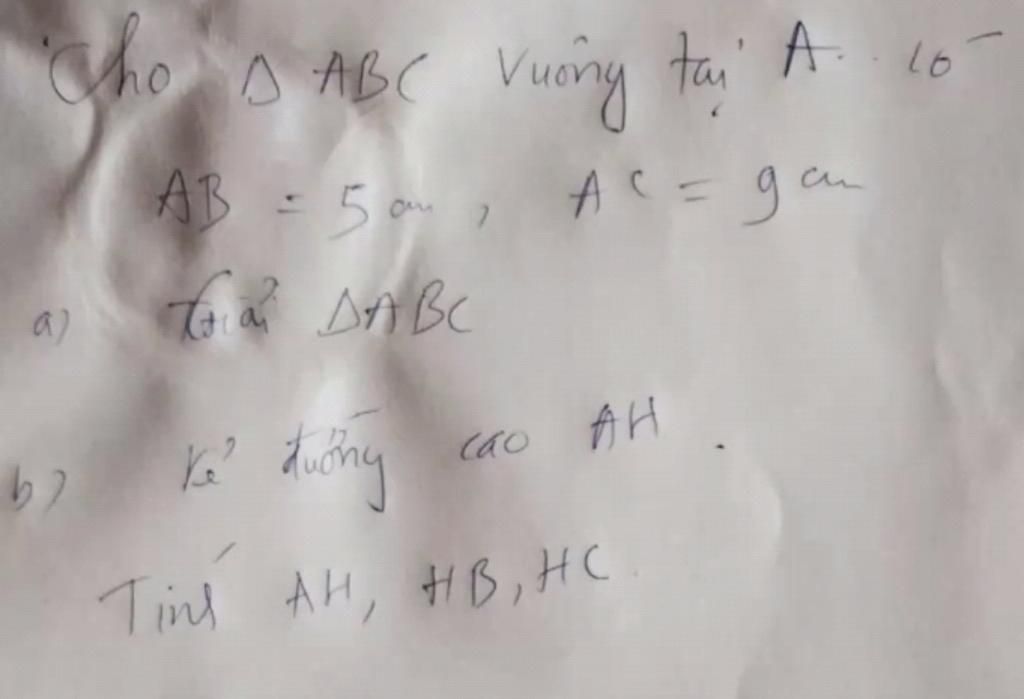 Cho Δ ABC vuông tại A. có
AB = 5 cm, AC = 9 cm
a) Giải ΔABC
b) Kẻ đường cao AH.
Tính AH, HB, HC.